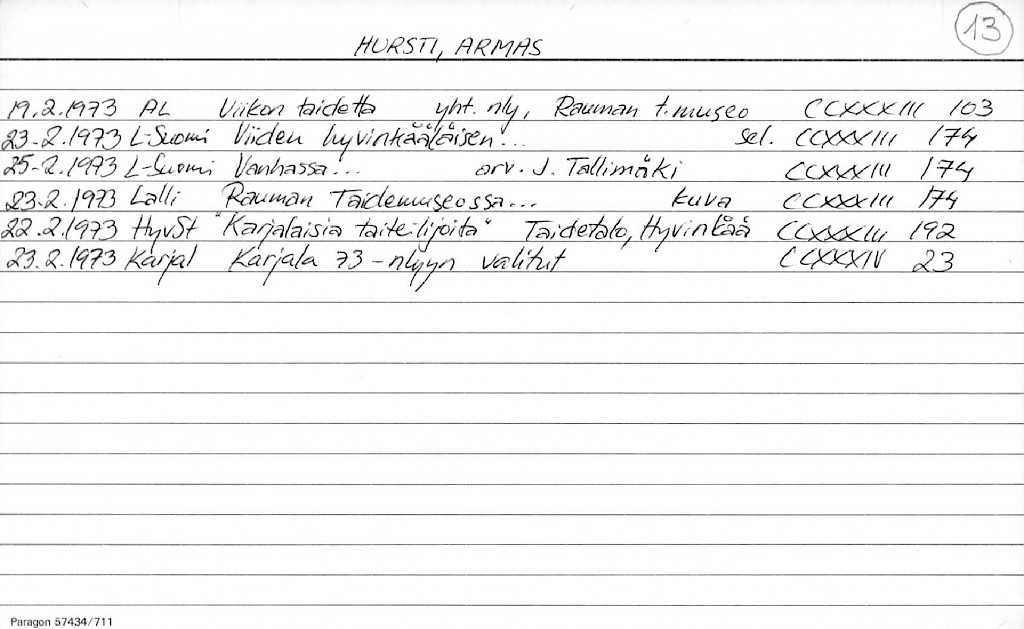 13
HURSTI, ARMAS
19.2.1973 AL Viikon taidetta yht. nly, Rauman t.museo CCXXXIII 103
23-2.1973 L-Suomi Viiden hyvinkääläisen... sel. CCXXXIII 174
25-2.1973 L-Suomi Vanhassa... arv. J. Tallimäki CCXXXIII 174
23.2.1973 Lalli Rauman Taidemuseossa... kuva CCXXXIII 174
22.2.1973 HyvSt "Karjalaisia taiteilijoita" Taidetalo, Hyvinkää CCXXXIII 192
23.2.1973 Karjal Karjala 73-nlyyn valitut CCXXXIV 23
Paragon 57434/711